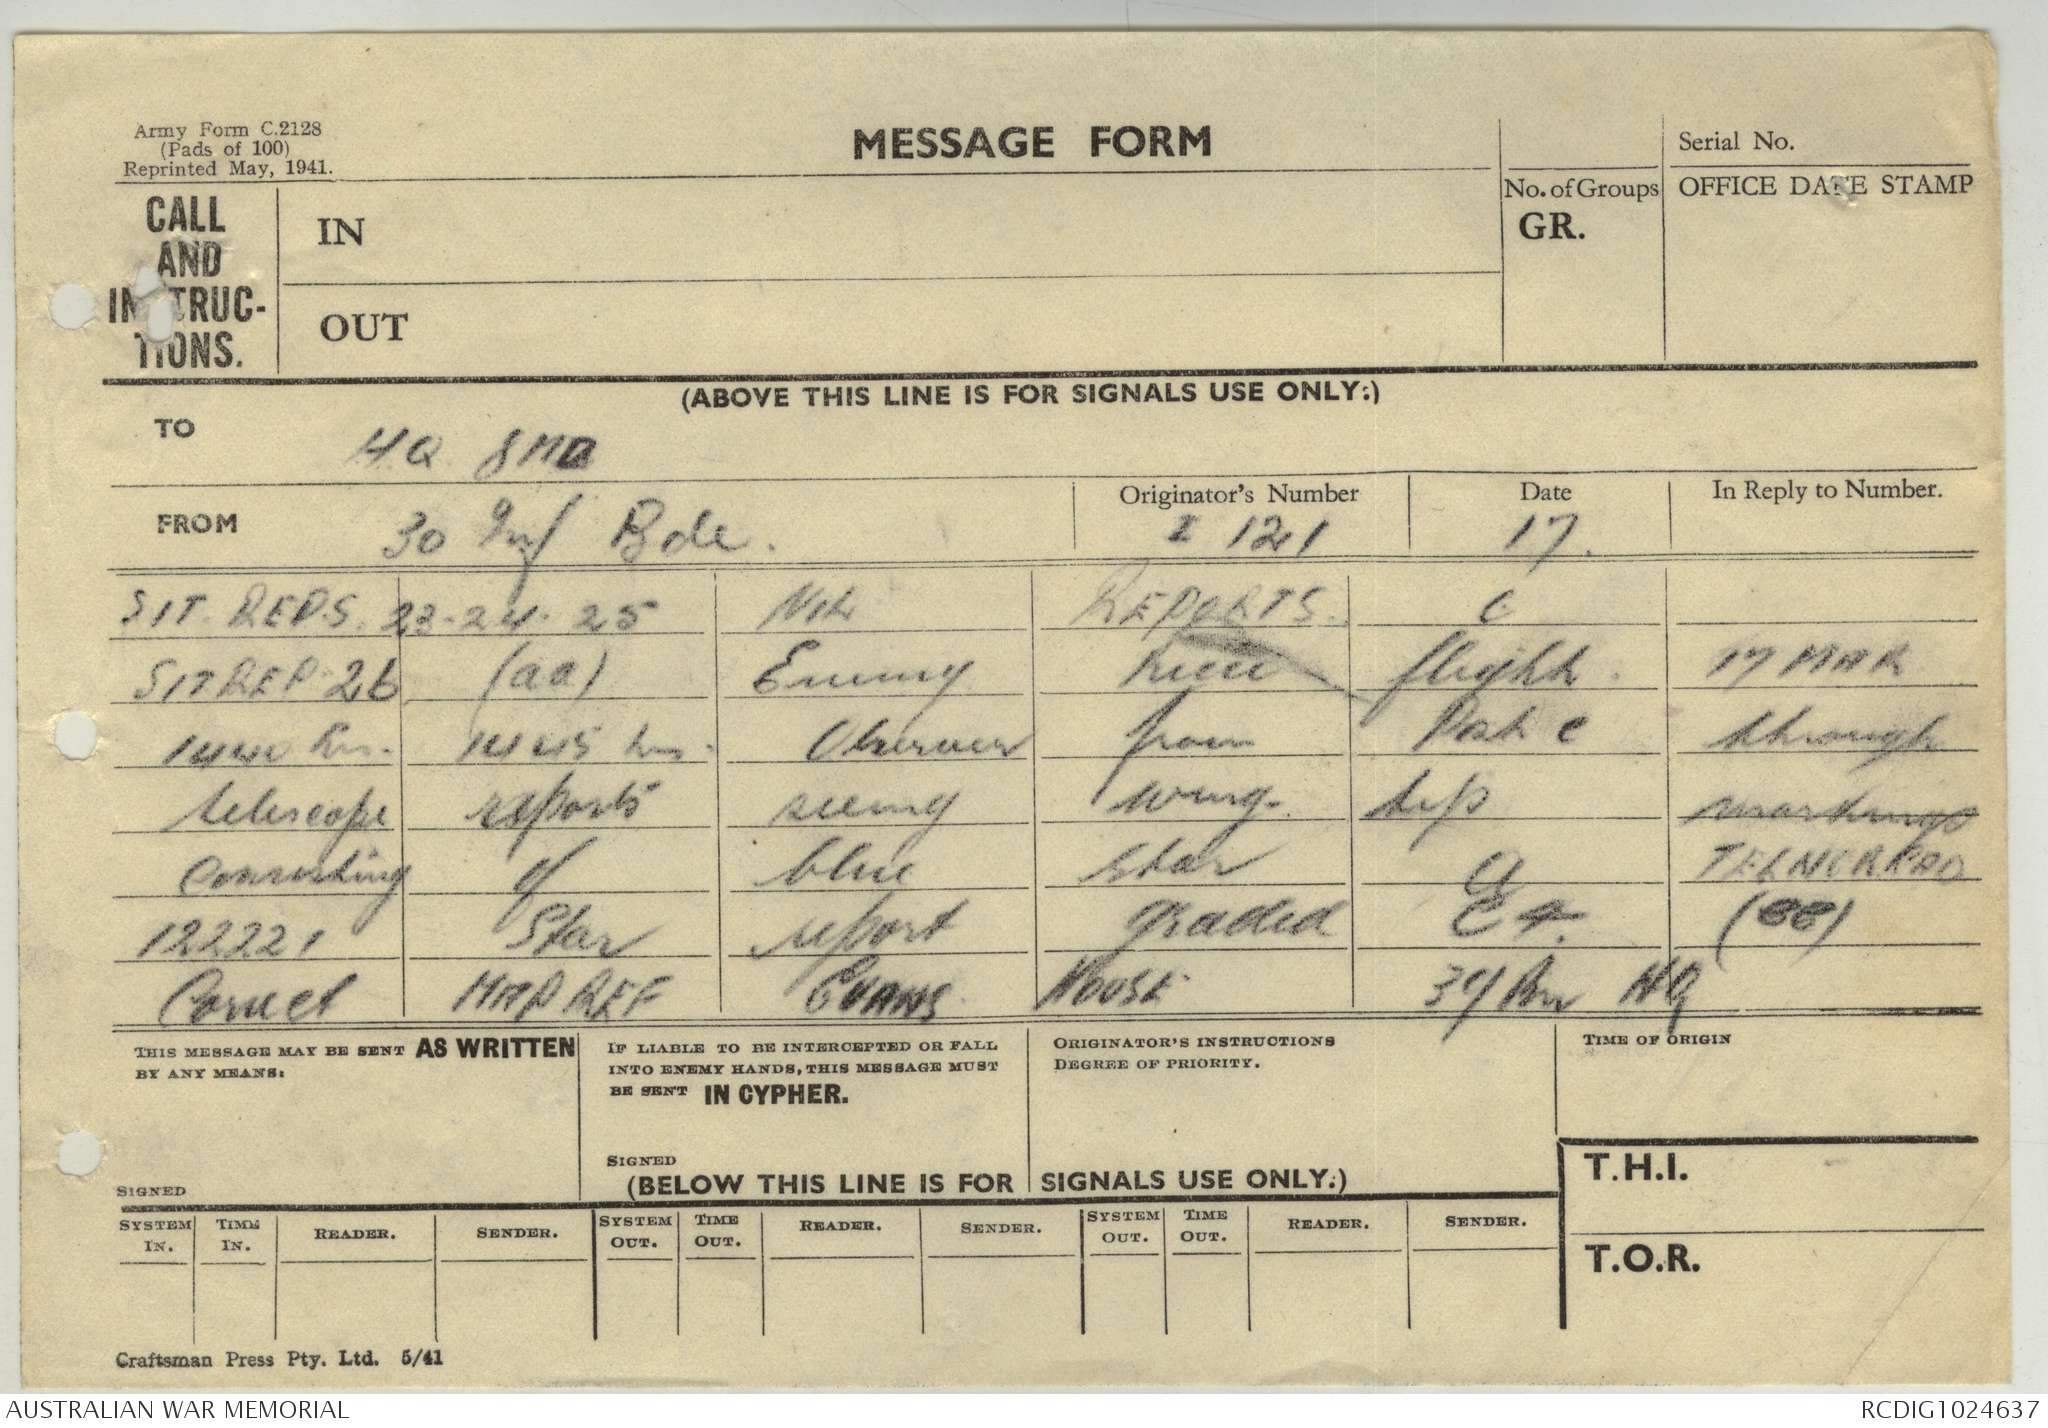 Army Form C.2128
(Pads of 100)
Reprinted May, 1941.
MESSAGE FORM
Serial No.
No. of Groups
GR.
OFFICE DATE STAMP
CALL
AND
INSTRUC-
TIONS.
IN
OUT
(ABOVE THIS LINE IS FOR SIGNALS USE ONLY.)
TO
HQ 8MD
FROM
30 Inf Bde.
Originator's Number
I 121
Date
17.
In Reply to Number.
SIT. REPS. 23-24-25 NIL REPORTS. C
SITREP 26 (aa) Enemy flight. 17 MAR
1440 hrs. 1445 hrs. Observer from Post C through
telescope reports seeing wing. tip markings
consisting of blue star a
122221 Star report graded C4. (cc)
Correct MAP REF EVANS HOUSE 37 Bn HQ
THIS MESSAGE MAY BE SENT AS WRITTEN
BY ANY MEANS:
IF LIABLE TO BE INTERCEPTED OR FALL
INTO ENEMY HANDS, THIS MESSAGE MUST
BE SENT IN CYPHER.
ORIGINATOR'S INSTRUCTIONS
DEGREE OF PRIORITY.
TIME OF ORIGIN
SIGNED
SIGNED
(BELOW THIS LINE IS FOR SIGNALS USE ONLY.)
T.H.I.
T.O.R.
SYSTEM IN. TIME IN. READER. SENDER. SYSTEM OUT. TIME OUT. READER. SENDER. SYSTEM OUT. TIME OUT. READER. SENDER.
Craftsman Press Pty. Ltd. 5/41
AUSTRALIAN WAR MEMORIAL
RCDIG1024637